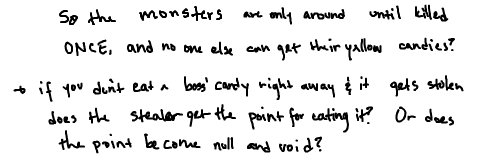 So the monsters are only around until killed
ONCE, and no one else can get their yellow candies?
→ if you don't eat a boss' candy right away & it gets stolen
does the stealer get the point for eating it? Or does
the point become null and void?